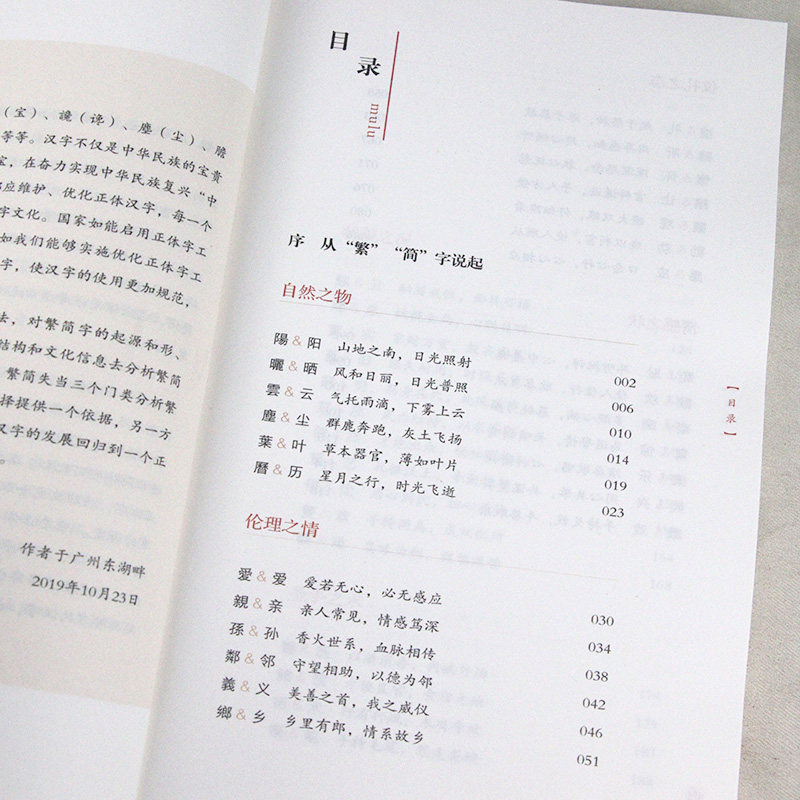 （宝）、讒（谗）、塵（尘）、膽
等等。汉字不仅是中华民族的宝贵
宝，在奋力实现中华民族复兴“中
应维护、优化正体汉字，每一个
字文化。国家如能启用正体字工
如我们能够实施优化正体字工
字，使汉字的使用更加规范，
法，对繁简字的起源和形、
结构和文化信息去分析繁简
繁简失当三个门类分析繁
择提供一个依据，另一方
汉字的发展回归到一个正
作者于广州东湖畔
2019年10月23日
目录
mulu
序 从“繁”“简”字说起
自然之物
陽&阳 山地之南，日光照射 002
曬&晒 风和日丽，日光普照 006
雲&云 气托雨滴，下雾上云 010
塵&尘 群鹿奔跑，灰土飞扬 014
葉&叶 草本器官，薄如叶片 019
曆&历 星月之行，时光飞逝 023
伦理之情
愛&爱 爱若无心，必无感应 030
親&亲 亲人常见，情感笃深 034
孫&孙 香火世系，血脉相传 038
鄰&邻 守望相助，以德为邻 042
義&义 美善之首，我之威仪 046
鄉&乡 乡里有郎，情系故乡 051
【目录】